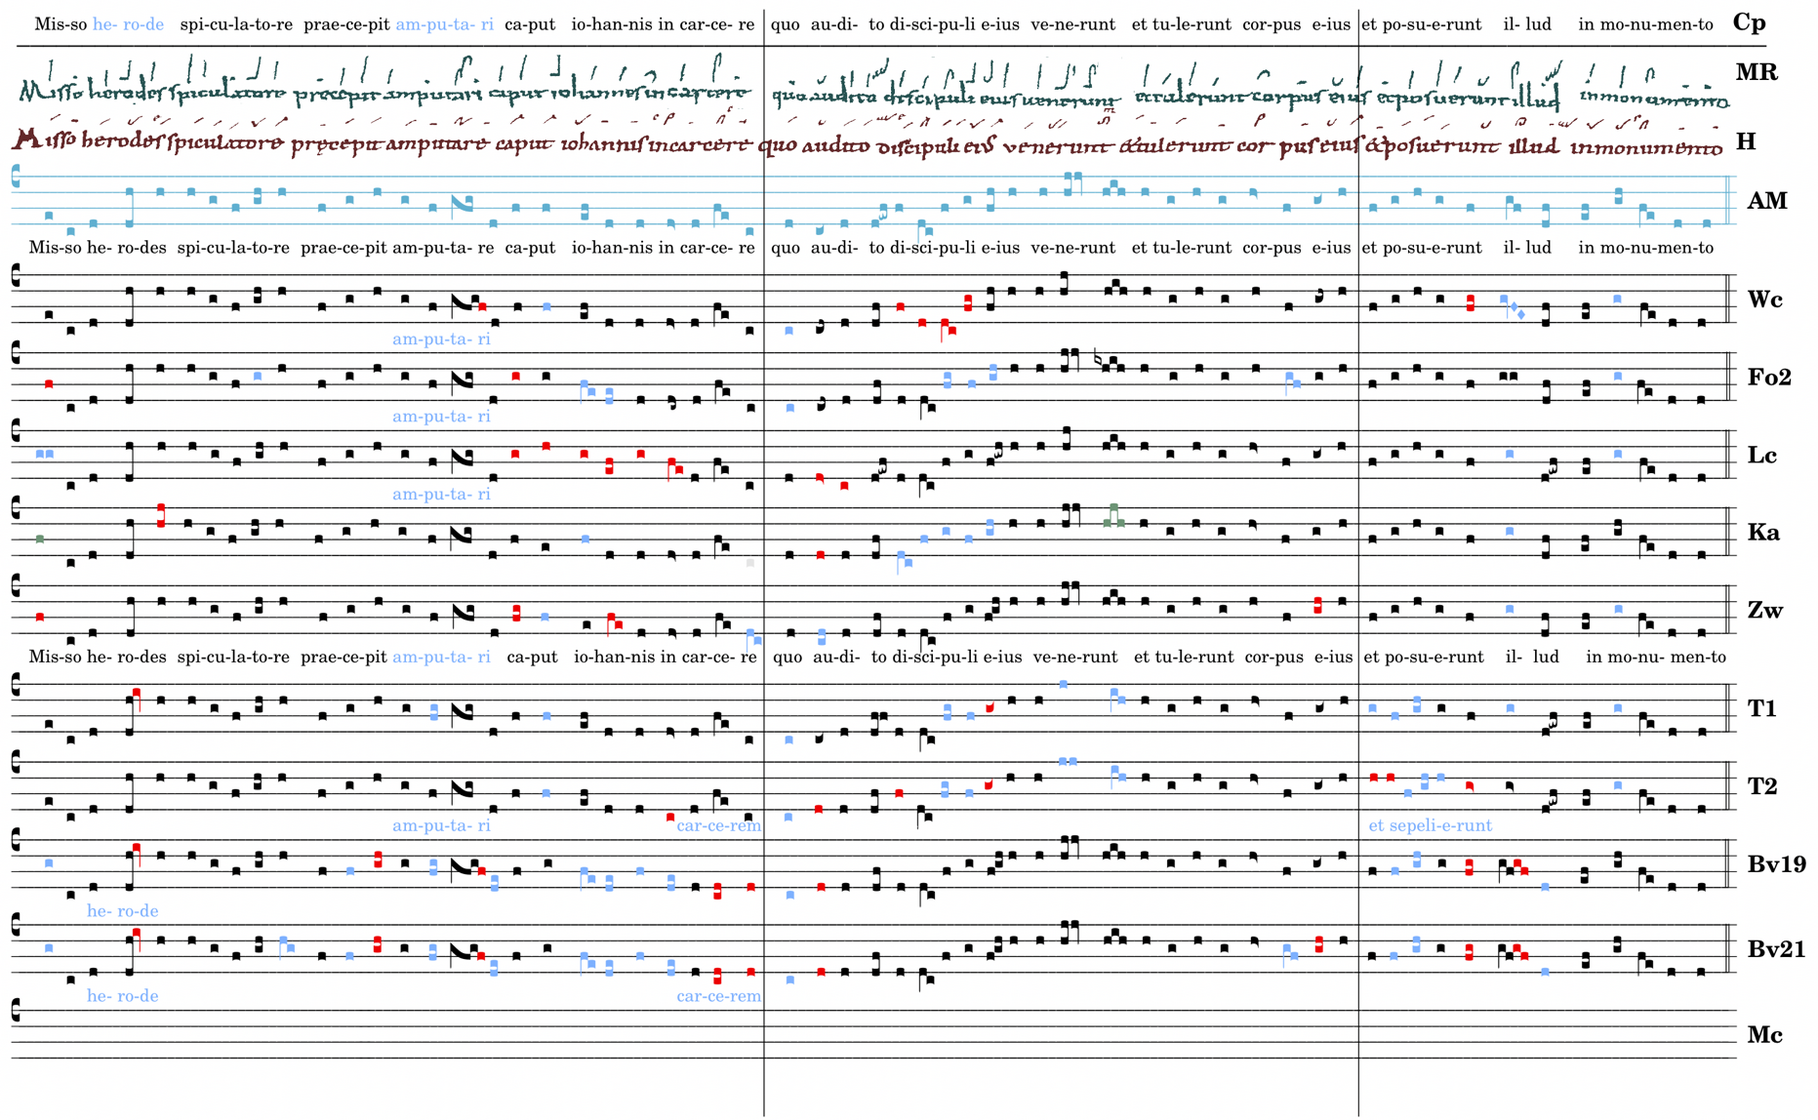 Mis-so he- ro-de spi-cu-la-to-re prae-ce-pit am-pu-ta- ri ca-put io-han-nis in car-ce- re quo au-di- to di-sci-pu-li e-ius ve-ne-runt et tu-le-runt cor-pus e-ius et po-su-e-runt il- lud in mo-nu-men-to Cp
Misso herodes spiculatore precepit amputari caput iohannes in carcere quo audito discipuli eius uenerunt et tulerunt corpus eius et posuerunt illud in monumento MR
Misso herodes spiculatore pręcepit amputare caput iohannis in carcere quo audito discipuli eius venerunt & tulerunt corpus eius & posuerunt illud in monumento H
AM
Mis-so he- ro-des spi-cu-la-to-re prae-ce-pit am-pu-ta- re ca-put io-han-nis in car-ce- re quo au-di- to di-sci-pu-li e-ius ve-ne-runt et tu-le-runt cor-pus e-ius et po-su-e-runt il- lud in mo-nu-men-to
Wc
am-pu-ta- ri
Fo2
am-pu-ta- ri
Lc
am-pu-ta- ri
Ka
Zw
Mis-so he- ro-des spi-cu-la-to-re prae-ce-pit am-pu-ta- ri ca-put io-han-nis in car-ce- re quo au-di- to di-sci-pu-li e-ius ve-ne-runt et tu-le-runt cor-pus e-ius et po-su-e-runt il- lud in mo-nu- men-to
T1
T2
am-pu-ta- ri car-ce-rem et sepeli-e-runt
Bv19
he- ro-de
Bv21
he- ro-de car-ce-rem
Mc